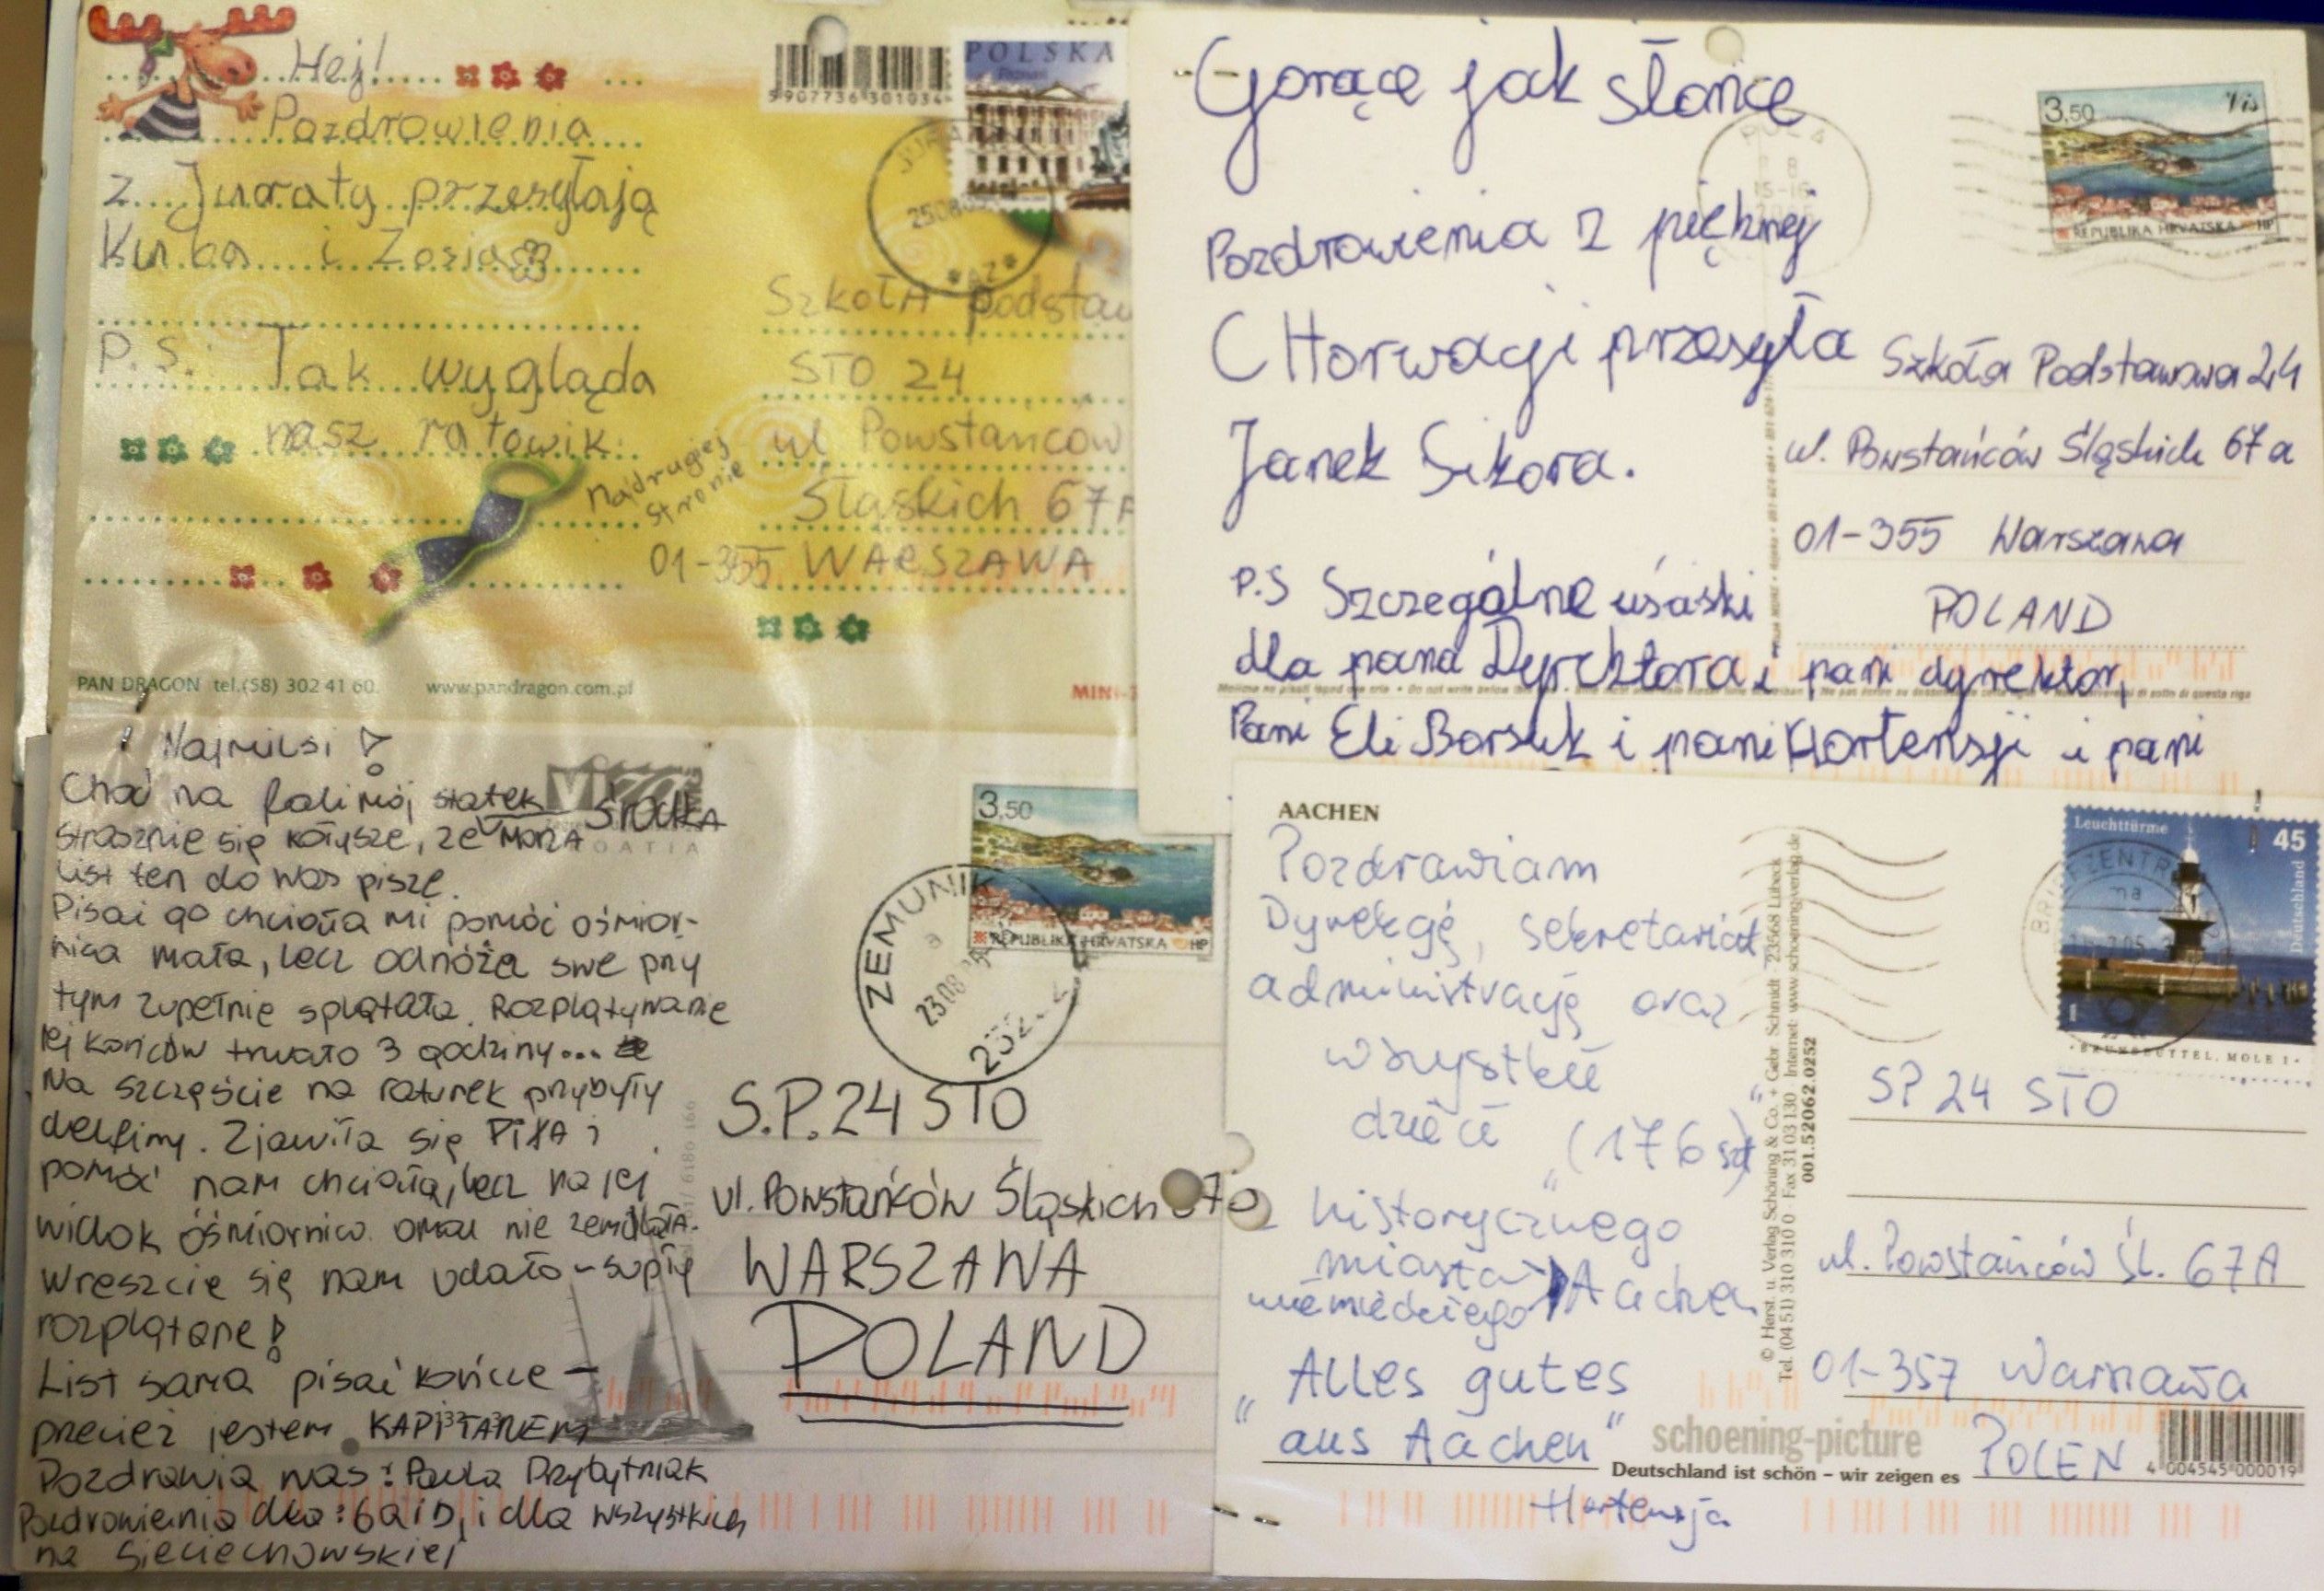 Hej!
Pozdrowienia
z Juraty przesyłają
Kuba i Zosia
P.S. Tak wygląda
nasz ratowik
Na drugiej
stronie
5907736301034
POLSKA
Poznań
25.08
SZKOŁA podstaw
STO 24
ul Powstańców
Śląskich 67A
01-355 WARSZAWA
PAN DRAGON tel.(58) 302 41 60. www.pandragon.com.pl
MINI-
Gorące jak słońce
Pozdrowienia z pięknej
CHorwacji przesyła
Janek Sikora.
P.S Szczególne uśaski
dla pana Dyrektora i pani dyrektor,
Pani Eli Borsuk i pani Hortensji i pani
3,50 Vis
REPUBLIKA HRVATSKA HP
Szkoła Podstawowa 24
ul. Powstańców Śląskich 67a
01-355 Warszawa
POLAND
Najmilsi!
Choć na fali mój statek
strasznie się kołysze, ze środka morza
List ten do was piszę.
Pisać go chciała mi pomóc ośmior-
nica mała, lecz odnóża swe przy
tym zupełnie splątała. Rozplątywanie
jej końców trwało 3 godziny...
Na szczęście na ratunek przybyły
delfiny. Zjawiła się PIŁA i
pomóc nam chciała, lecz na jej
widok ośmiornica omal nie zemdlała.
Wreszcie się nam udało - supły
rozplątane!
List sama pisać kończę -
przecież jestem KAPITANEM
Pozdrawia was: Paula Przybytniak
Pozdrowienia dla: 6a i D, i dla wszystkich
na Sieciechowskiej
CROATIA
3,50
REPUBLIKA HRVATSKA HP
ZEMUNIK
23.08
S.P. 24 STO
ul. Powstańców Śląskich 67a
WARSZAWA
POLAND
AACHEN
Pozdrawiam
Dyrekcję, sekretariat
administrację oraz
wszystkie
dzieci (176 szt)
z "historycznego"
miasta
niemieckiego Aachen
"Alles gutes
aus Aachen"
Hortensja
© Herst. u. Verlag Schöning & Co. + Gebr. Schmidt · 23568 Lübeck
Tel. (04 51) 310 310 0 · Fax 31 03 130 · Internet: www.schoeningverlag.de
001.52062.0252
Leuchttürme 45
Deutschland
BRUNSBÜTTEL, MOLE 1
BRIEFZENTRUM
SP 24 STO
ul. Powstańców Śl. 67A
01-357 Warszawa
POLEN
schoening-picture
Deutschland ist schön – wir zeigen es
4 004545 000019